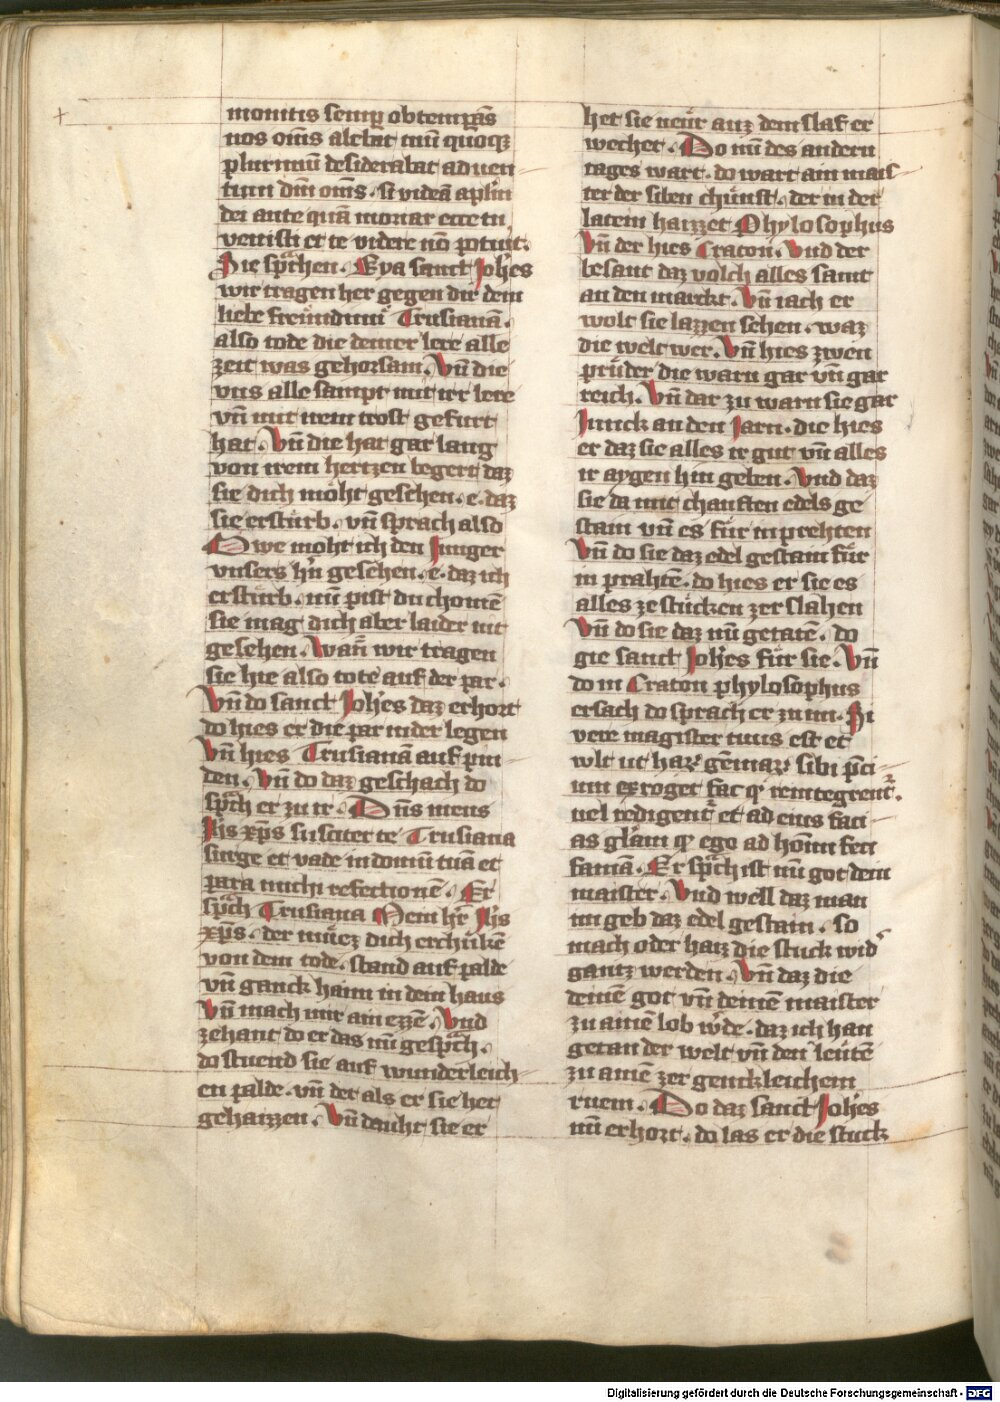 monitis semp obtempās
nos om̄s alebat nūc quoqꝫ
plurimū desiderabat aduen
tum dn̄i om̄s. si videā apl̄m
dei ante quā moriar ecce tu
venisti et te videre nō potuit.
Sie sprͣchen. Eya sanct Joh̄es
wir tragen her gegen dir dein
liebe freundinn Trusianā.
also tode die deiner lere alle
zeit was gehorsam. Vn̄ die
vns alle sampt mit irr lere
vn̄ mit irem trost gefurt
hat. Vn̄ die hat gar lang
von irem hertzen begert daz
sie dich möht gesehen. e. daz
sie ersturb. vn̄ sprach also
Owe moht ich den Junger
vnsers h̄n gesehen. e. daz ich
ersturb. nū pist du chomē
sie mag dich aber laider nit
gesehen. Wan̄ wir tragen
sie hie also tote auf der par.
Vn̄ do sanct Joh̄es daz erhort
do hies er die par nider legen
Vn̄ hies Trusianā auf pin
den. Vn̄ do daz geschach do
sprͣch er zu ir. Dn̄s meus
Jh̄s xp̄s suscitet te Trusiana
surge et vade in domū tuā et
para michi refectionē. Er
sprͣch Trusiana Mein h̄re Jh̄s
xp̄s. der muͤez dich erchukē
von dem tode. stand auf palde
vn̄ ganck haim in dein haus
Vn̄ mach mir ain ezzē. Vnd
zehant do er das nū gesprͣch.
do stuend sie auf wunderleich
en palde. vn̄ det als er sie het
gehaizzen. Vn̄ dauht sie er
het sie neur auz dem slaf er
wechet. Do nū des andern
tages wart. do wart ain mais
ter der siben chunst. der in der
latein haizzet Phylosophus
Vn̄ der hies Craton. Vnd der
besant daz volch alles samt
an den marckt. Vn̄ iach er
wolt sie lazzen sehen. waz
die welt wer. Vn̄ hies zwen
pruder die warn gar vn̄ gar
reich. Vn̄ dar zu warn sie gar
Junck an den Jarn. die hies
er daz sie alles ir gut vn̄ alles
ir aygen hin geben. Vnd daz
sie da mit chauften edels ge
stain vn̄ es fur in prehten
Vn̄ do sie daz edel gestain fur
in prahtē. do hies er sie es
alles ze stucken zer slahen
Vn̄ do sie daz nū getatē. do
gie sanct Joh̄es fur sie. Vn̄
do in Craton phylosophus
ersach do sprach er zu im. Si
vere magister tuus est et
wlt ut haꝝ gēmaꝝ sibi p̄ci
um eroget fac qͥ reintegrent̾.
uel redigent̾ et ad eius faci
as gl̄am qͣ ego ad hoīm feci
famā. Er sprͣch ist nū got dein
maister. Vnd well daz man
im geb daz edel gestain. so
mach oder haiz die stuck wid̾
gantz werden. Vn̄ daz die
deinē got vn̄ deinē maister
zu ainē lob w̾de. daz ich han
getan der welt vn̄ den leutē
zu ainē zergenckleichem
ruem. Do daz sanct Joh̄es
nū erhort. do las er die stuck
Digitalisierung gefördert durch die Deutsche Forschungsgemeinschaft - DFG